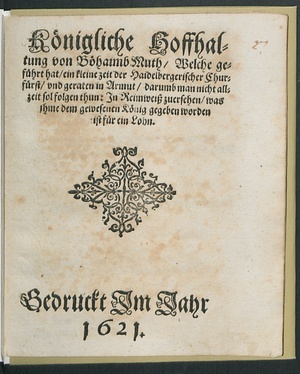 Königliche Hoffhal-
tung von Böhaimb Muth/ Welche ge-
führt hat/ ein kleine zeit der Haidelbergerischer Chur-
fürst/ vnd geraten in Armut/ darumb man nicht all-
zeit sol folgen thun: In Reimweiß zuersehen/ was
ihme dem gewesenen König gegeben worden
ist für ein Lohn.
Gedruckt Im Jahr
1621.